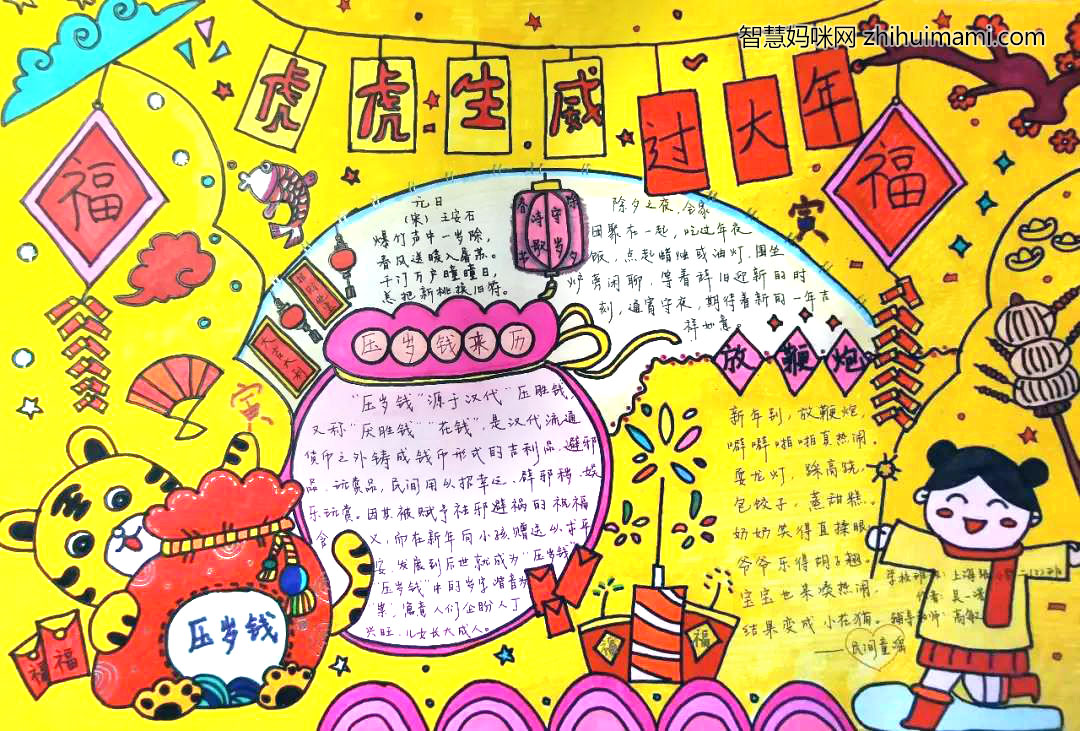 智慧妈咪网 zhihuimami.com
虎虎生威
过大年
福
福
元日
(宋) 王安石
爆竹声中一岁除,
春风送暖入屠苏。
千门万户曈曈日,
总把新桃换旧符。
除夕之夜,全家
团聚在一起,吃过年夜
饭,点起蜡烛或油灯,围坐
炉旁闲聊,等着辞旧迎新的时
刻,通宵守夜,期待着新的一年吉
祥如意。
寅
压岁钱来历
"压岁钱"源于汉代"压胜钱,
又称"厌胜钱""花钱",是汉代流通
货币之外铸成钱币形式的吉利品、避邪
品、玩赏品,民间用以招幸运、辟邪秽、娱
乐玩赏。因其被赋予祛邪避祸的祝福
含义,而在新年向小孩赠送以求平
安,发展到后世就成为"压岁钱"
"压岁钱"中的岁字谐音为
"祟,寓意人们企盼人丁
兴旺,儿女长大成人。
放鞭炮
新年到,放鞭炮,
噼噼啪啪真热闹。
耍龙灯,踩高跷,
包饺子,蒸甜糕。
奶奶笑得直揉眼,
爷爷乐得胡子翘,
宝宝也来凑热闹,
结果变成小花猫。
——民间童谣
寅
压岁钱
福福
福
福